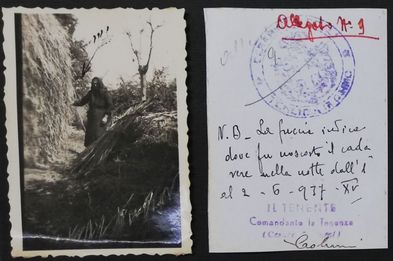 Allegato Nº 9
9
N.B_ La freccia indica
dove fu nascosto il cada
vere nella notte dall'1
al 2-6-937-XV
IL TENENTE
Comandante la Tenenza